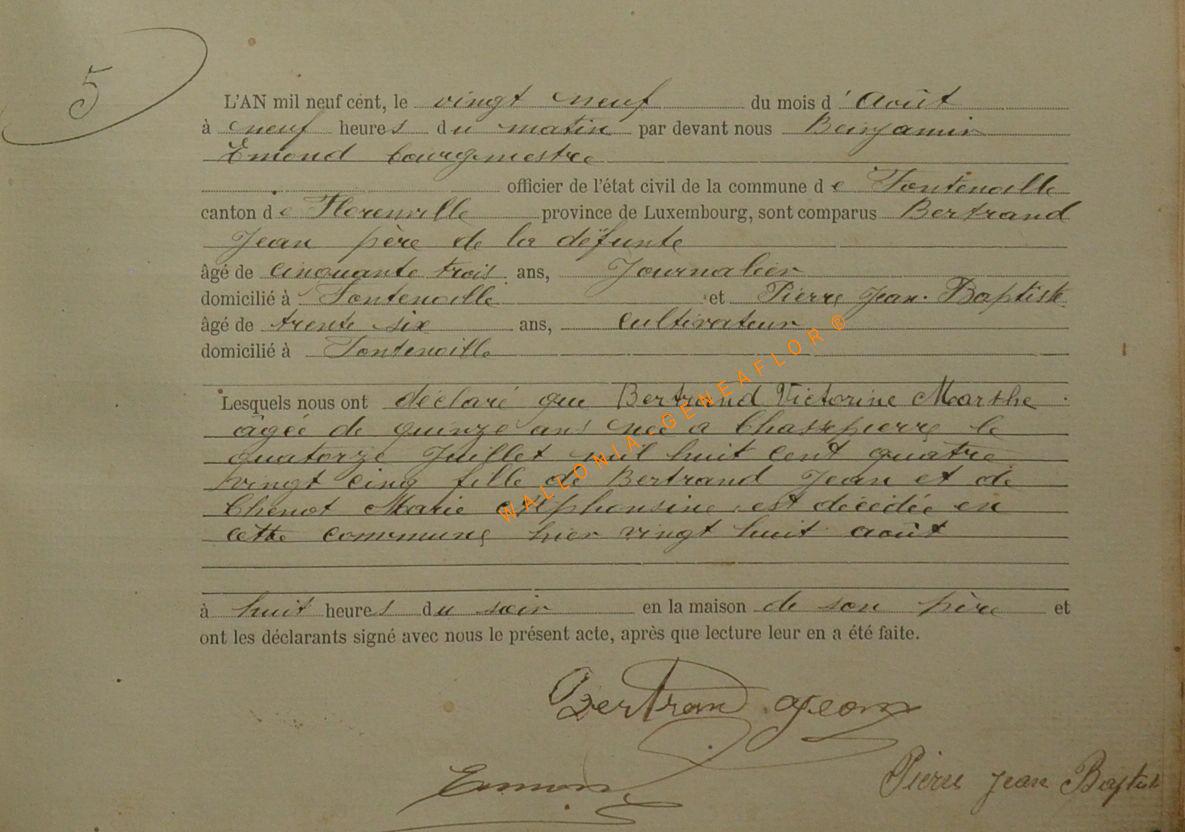 5
L'AN mil neuf cent, le vingt neuf du mois d' Août
à neuf heures du matin par devant nous Benjamin
Emond bourgmestre
officier de l'état civil de la commune de Fontenoille
canton de Florenville province de Luxembourg, sont comparus Bertrand
Jean père de la défunte
âgé de cinquante trois ans, Journalier
domicilié à Fontenoille et Pierre Jean-Baptiste
âgé de trente six ans, cultivateur
domicilié à Fontenoille
Lesquels nous ont déclaré que Bertrand Victorine Marthe
âgée de quinze ans née à Chassepierre le
quatorze Juillet mil huit cent quatre
vingt cinq fille de Bertrand Jean et de
Chenot Marie Alphonsine est décédée en
cette commune hier vingt huit août
à huit heures du soir en la maison de son père et
ont les déclarants signé avec nous le présent acte, après que lecture leur en a été faite.
Bertrand Jean
Emond
Pierre Jean Baptiste
WALLONIA-GENEAFLOR ®